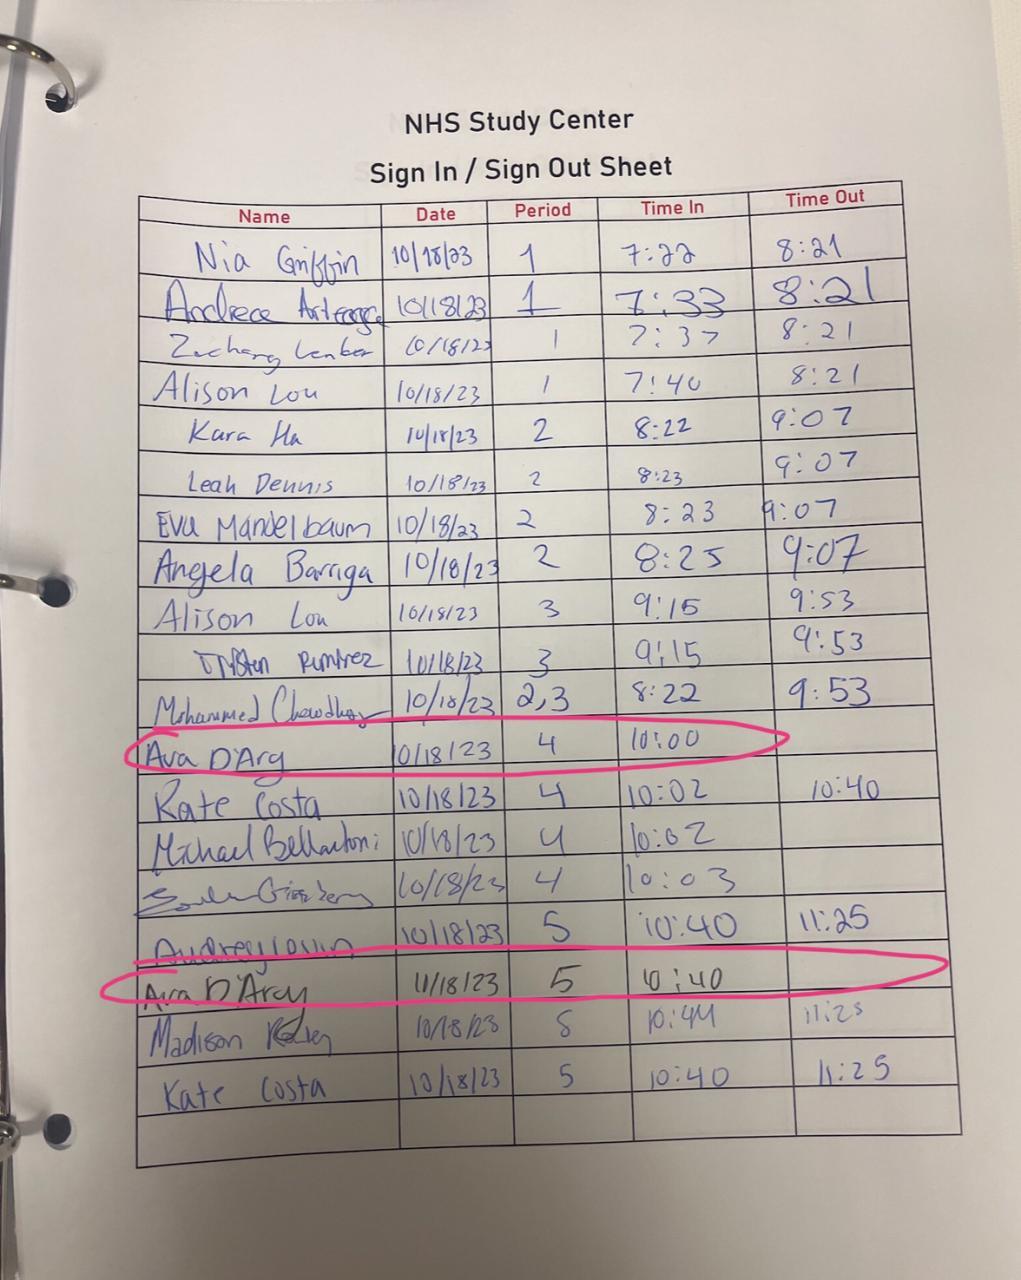 NHS Study Center
Sign In / Sign Out Sheet
Name Date Period Time In Time Out
Nia Griffin 10/18/23 1 7:22 8:21
Andrea Arteaga 10/18/23 1 7:33 8:21
Zachary 10/18/23 1 7:37 8:21
Alison Lou 10/18/23 1 7:40 8:21
Kara Ha 10/18/23 2 8:22 9:07
Leah Dennis 10/18/23 2 8:23 9:07
Eva Mandelbaum 10/18/23 2 8:23 9:07
Angela Barriga 10/18/23 2 8:25 9:07
Alison Lou 10/18/23 3 9:15 9:53
10/18/23 3 9:15 9:53
Mohammed Chowdhury 10/18/23 2,3 8:22 9:53
Ava D'Arcy 10/18/23 4 10:00
Kate Costa 10/18/23 4 10:02 10:40
Michael 10/18/23 4 10:02
10/18/23 4 10:03
Audrey 10/18/23 5 10:40 11:25
Ava D'Arcy 11/18/23 5 10:40
Madison 10/18/23 5 10:44 11:25
Kate Costa 10/18/23 5 10:40 11:25